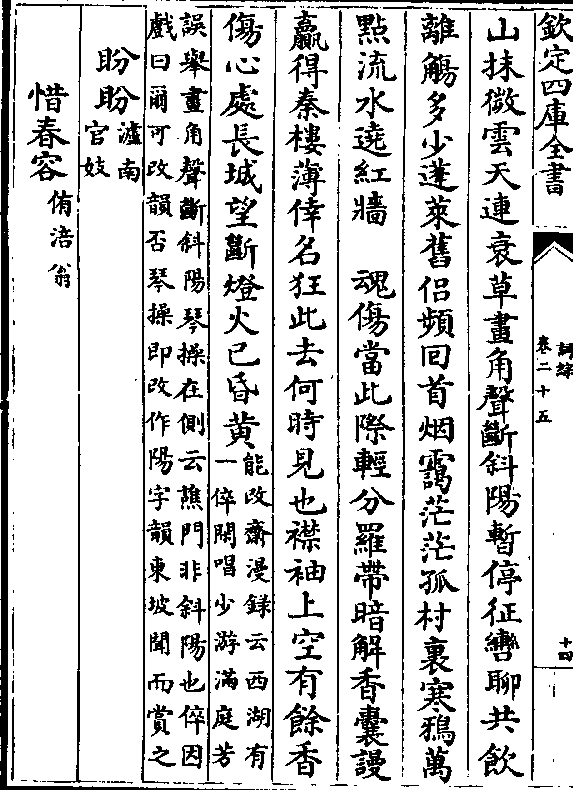 欽定四庫全書
詞綜
卷二十五
十四
山抹微雲天連衰草畫角聲斷斜陽暫停征轡聊共飲
離觴多少蓬萊舊侶頻回首烟靄茫茫孤村裏寒鴉萬
點流水遶紅牆　魂傷當此際輕分羅帶暗解香囊謾
贏得秦樓薄倖名狂此去何時見也襟袖上空有餘香
傷心處長城望斷燈火已昏黃
能改齋漫録云西湖有
一倅閑唱少游滿庭芳
誤舉畫角聲斷斜陽琴操在側云譙門非斜陽也倅因
戲曰爾可改韻否琴操即改作陽字韻東坡聞而賞之
盼盼
瀘南
官妓
惜春容
侑涪翁